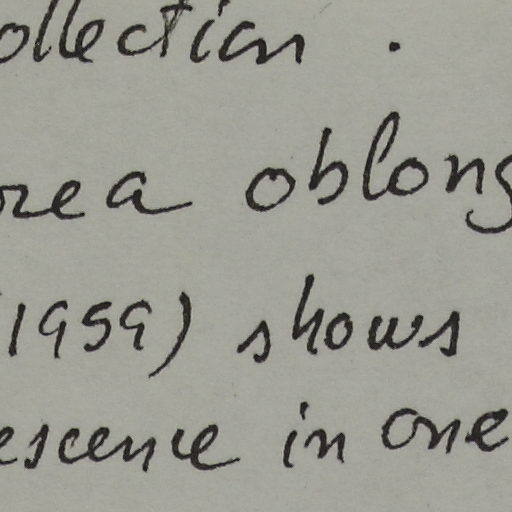 ollection .
rea oblong
(1959) shows
escence in one